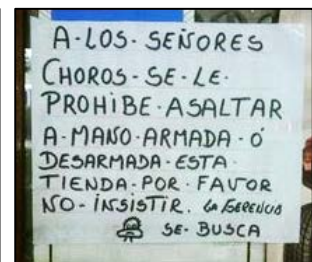 A·LOS·SEÑORES
CHOROS·SE·LE·
PROHIBE·ASALTAR
A·MANO·ARMADA·Ó
DESARMADA·ESTA·
TIENDA·POR·FAVOR
NO·INSISTIR. LA GERENCIA
SE·BUSCA